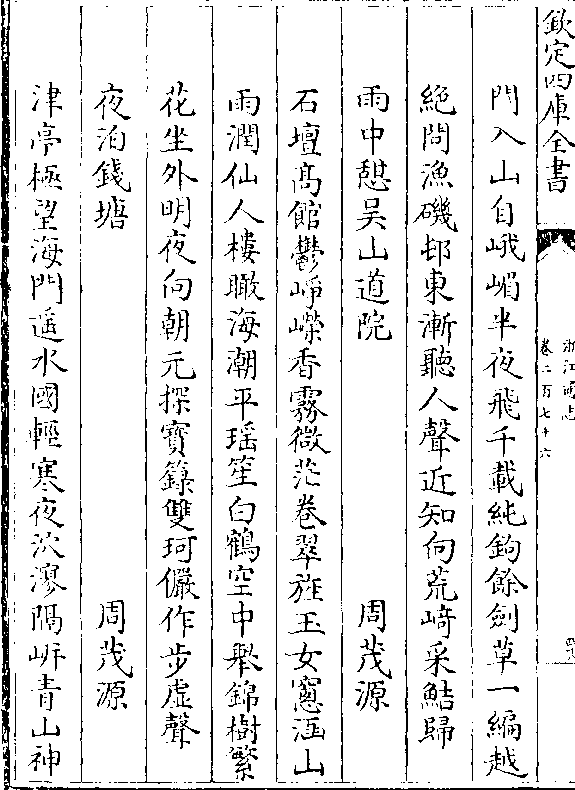 欽定四庫全書
浙江通志
卷二百七十六
門入山自峨嵋半夜飛千載純鉤餘劍草一編越
絶問漁磯邨東漸聽人聲近知向荒﨑采鮚歸
雨中憇吴山道院 周茂源
石壇髙館鬱崢嶸香霧微茫卷翠旌玉女窻涵山
雨潤仙人樓瞰海潮平瑶笙白鶴空中舉錦樹繁
花坐外明夜向朝元探寳籙雙珂儼作步虚聲
夜泊錢塘 周茂源
津亭極望海門遥水國輕寒夜泬漻隔㟁青山神